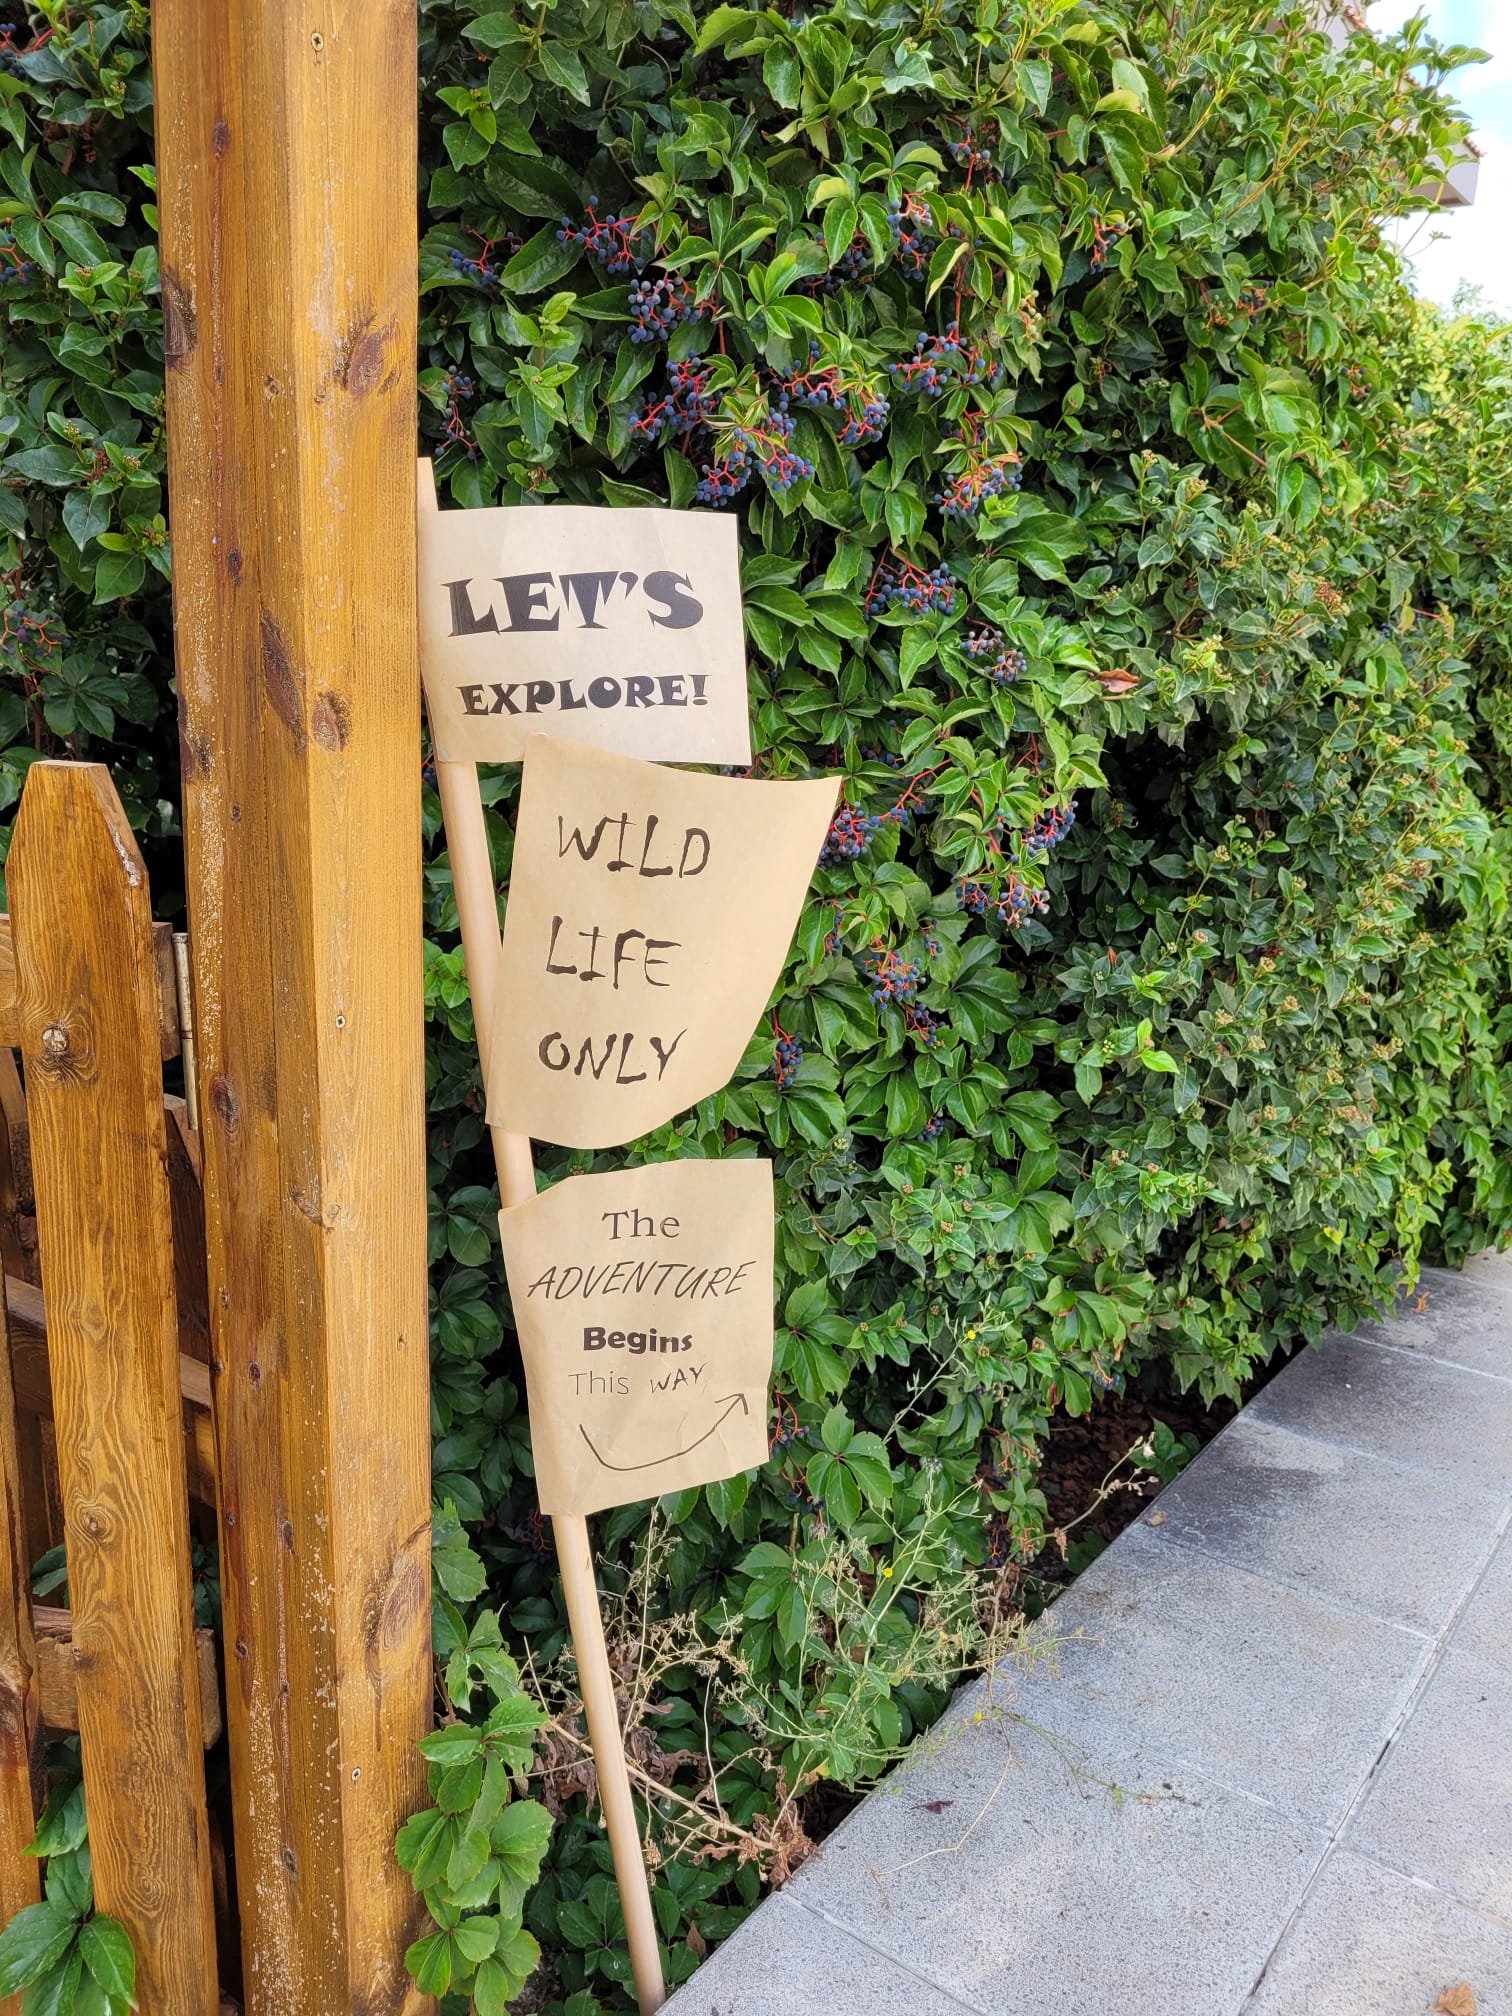 LET'S
EXPLORE!
WILD
LIFE
ONLY
The
ADVENTURE
Begins
This WAY